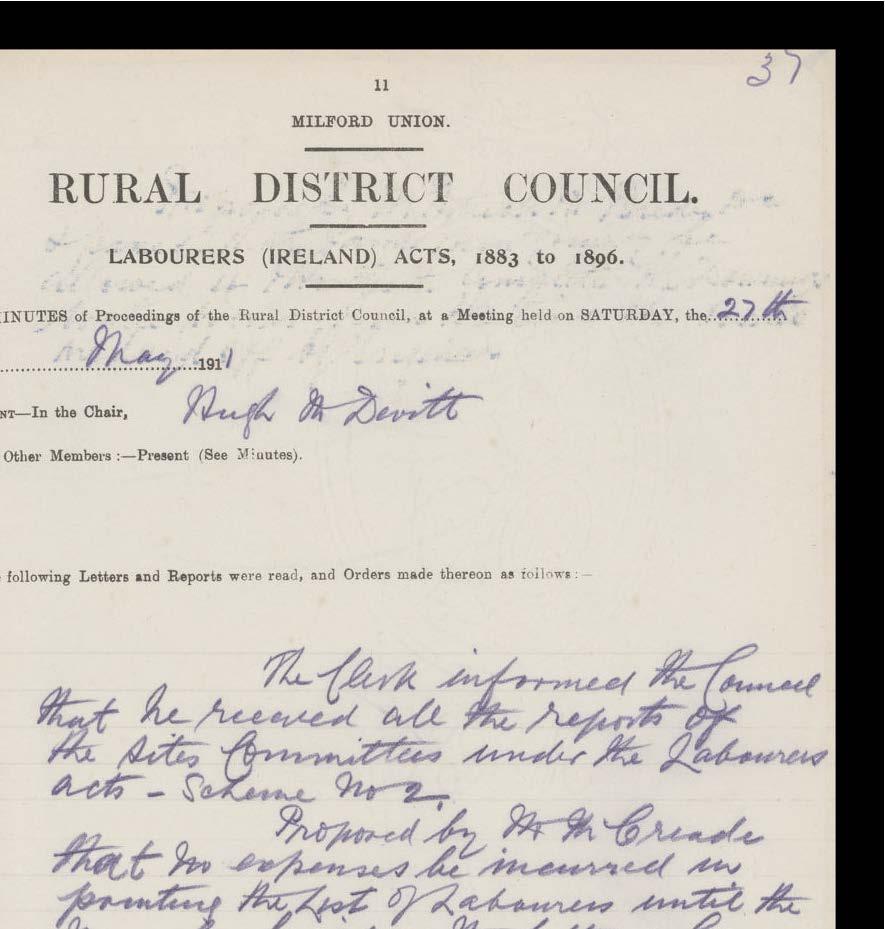 37
11
MILFORD UNION.
RURAL DISTRICT COUNCIL.
LABOURERS (IRELAND) ACTS, 1883 to 1896.
INUTES of Proceedings of the Rural District Council, at a Meeting held on SATURDAY, the 27th
May 1911
NT—In the Chair, Hugh McDevitt
Other Members :—Present (See Minutes).
following Letters and Reports were read, and Orders made thereon as follows :—
The Clerk informed the Council
that he received all the reports of
the Sites Committees under the Labourers
acts - Scheme No 2.
Proposed by Mr
that no expenses be incurred in
printing the List of Labourers until the